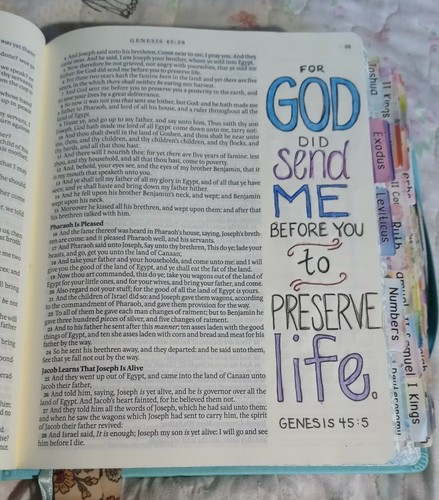 GENESIS 45:28
4 And Joseph said unto his brethren, Come near to me, I pray you. And they
came near. And he said, I am Joseph your brother, whom ye sold into Egypt.
5 Now therefore be not grieved, nor angry with yourselves, that ye sold me
hither: for God did send me before you to preserve life.
6 For these two years hath the famine been in the land: and yet there are five
years, in the which there shall neither be earing nor harvest.
7 And God sent me before you to preserve you a posterity in the earth, and
to save your lives by a great deliverance.
8 So now it was not you that sent me hither, but God: and he hath made me
a father to Pharaoh, and lord of all his house, and a ruler throughout all the
land of Egypt.
9 Haste ye, and go up to my father, and say unto him, Thus saith thy son
Joseph, God hath made me lord of all Egypt: come down unto me, tarry not:
10 And thou shalt dwell in the land of Goshen, and thou shalt be near unto
me, thou, and thy children, and thy children's children, and thy flocks, and
thy herds, and all that thou hast:
11 And there will I nourish thee; for yet there are five years of famine; lest
thou, and thy household, and all that thou hast, come to poverty.
12 And, behold, your eyes see, and the eyes of my brother Benjamin, that it
is my mouth that speaketh unto you.
13 And ye shall tell my father of all my glory in Egypt, and of all that ye have
seen; and ye shall haste and bring down my father hither.
14 And he fell upon his brother Benjamin's neck, and wept; and Benjamin
wept upon his neck.
15 Moreover he kissed all his brethren, and wept upon them: and after that
his brethren talked with him.
Pharaoh Is Pleased
16 And the fame thereof was heard in Pharaoh's house, saying, Joseph's breth-
ren are come: and it pleased Pharaoh well, and his servants.
17 And Pharaoh said unto Joseph, Say unto thy brethren, This do ye; lade your
beasts, and go, get you unto the land of Canaan;
18 And take your father and your households, and come unto me: and I will
give you the good of the land of Egypt, and ye shall eat the fat of the land.
19 Now thou art commanded, this do ye; take you wagons out of the land of
Egypt for your little ones, and for your wives, and bring your father, and come.
20 Also regard not your stuff; for the good of all the land of Egypt is yours.
21 And the children of Israel did so: and Joseph gave them wagons, according
to the commandment of Pharaoh, and gave them provision for the way.
22 To all of them he gave each man changes of raiment; but to Benjamin he
gave three hundred pieces of silver, and five changes of raiment.
23 And to his father he sent after this manner; ten asses laden with the good
things of Egypt, and ten she asses laden with corn and bread and meat for his
father by the way.
24 So he sent his brethren away, and they departed: and he said unto them,
See that ye fall not out by the way.
Jacob Learns That Joseph Is Alive
25 And they went up out of Egypt, and came into the land of Canaan unto
Jacob their father,
26 And told him, saying, Joseph is yet alive, and he is governor over all the
land of Egypt. And Jacob's heart fainted, for he believed them not.
27 And they told him all the words of Joseph, which he had said unto them:
and when he saw the wagons which Joseph had sent to carry him, the spirit
of Jacob their father revived:
28 And Israel said, It is enough; Joseph my son is yet alive: I will go and see
him before I die.
FOR
GOD
DID
send
ME
BEFORE YOU
to
PRESERVE
life.
GENESIS 45:5
Joshua
II Kings
Exodus
Leviticus
Ruth
Numbers
I Kings